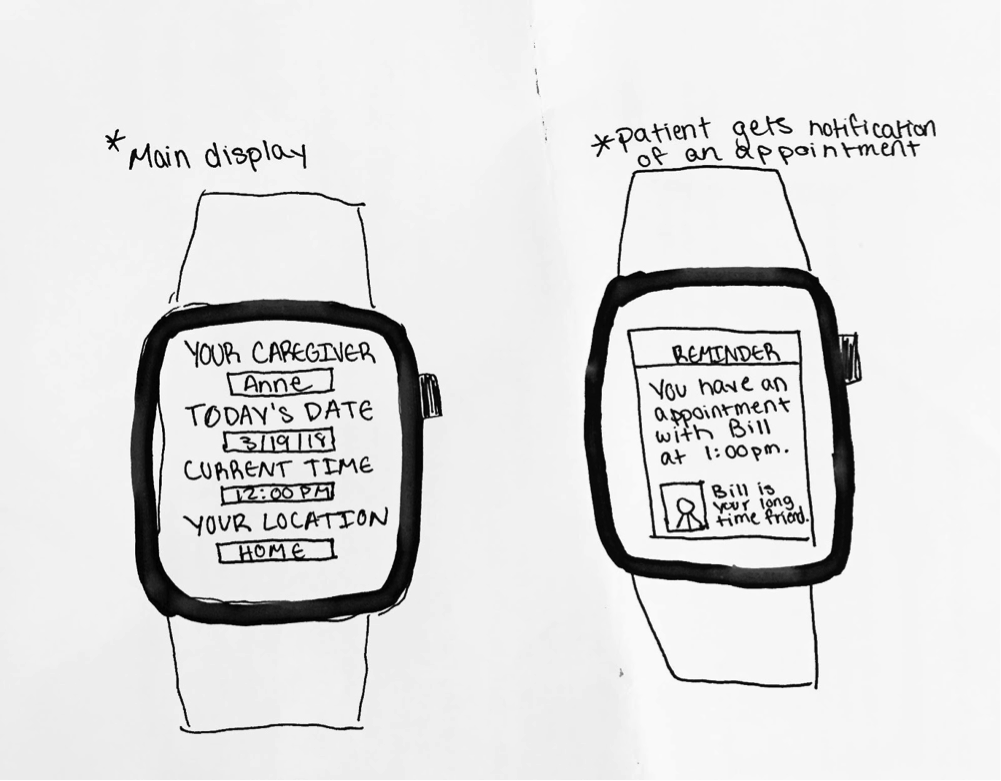 *Main display
YOUR CAREGIVER
Anne
TODAY'S DATE
3/19/18
CURRENT TIME
12:00 PM
YOUR LOCATION
HOME
*Patient gets notification
of an appointment
REMINDER
You have an
appointment
with Bill
at 1:00pm.
Bill is
your long
time friend.